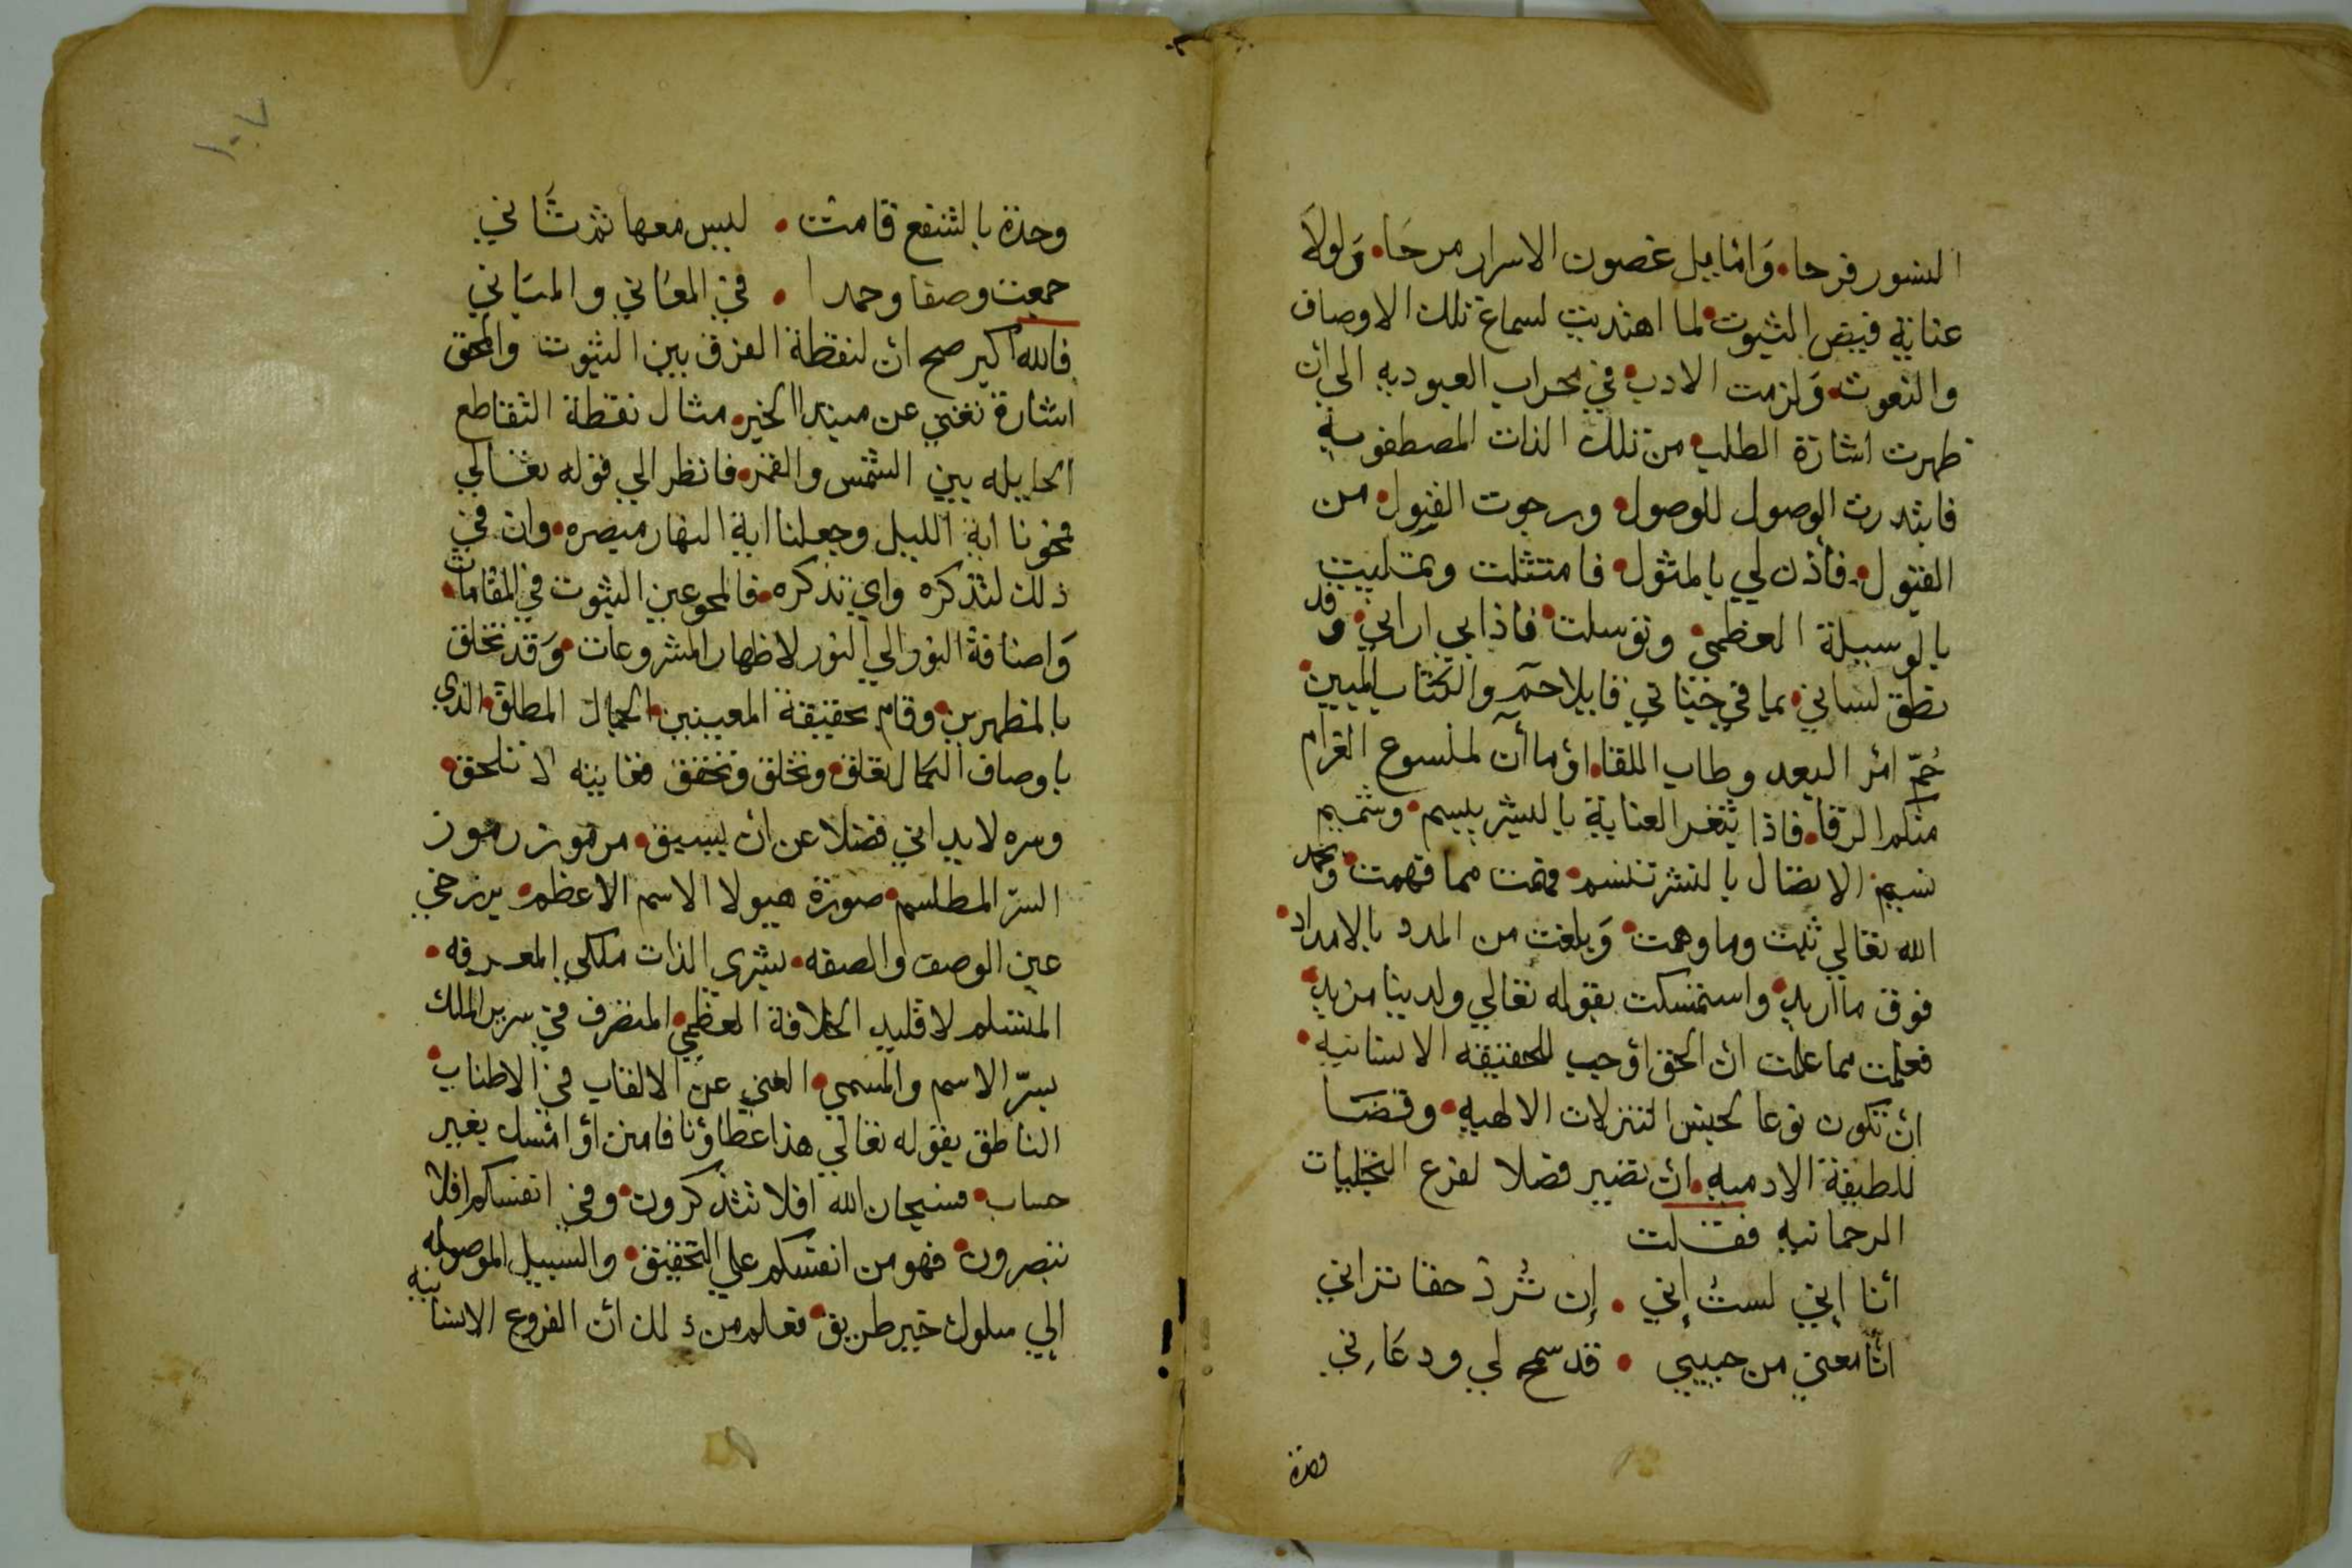 السور فرحا. وَاتمايل غصون الاسرار مرحَا. وَلولا
عناية فيض الثبوت. لما اهتديت لسماع تلك الاوصاف
والنعوت. وَلزمت الادب. في محراب العبوديه الي ان
ظهرت اشارة الطلب. من تلك الذات المصطفويه
فابتدرت الوصول للوصول. ورجوت القبول. من
القبول. فأذن لي بالمثول. فامتثلت وتمليت
بالوسيلة العظمي. وتوسلت. فاذا بي اراني. وقد
نطق لساني. بما في جناني قايلا حم والكتاب المبين.
حُمّ امر البعد وطاب اللقا. اوما آن لملسوع الغرام
منكم الرقا. فاذا ثغر العناية بالبشر يبسم. وشميم
نسيم الاتصال بالنشر تنسم. فهمت مما فهمت. وبحمد
الله تعالي ثبت وما وهمت. وَبلغت من المدد بالامداد.
فوق ما اريد. واستمسكت بقوله تعالي ولدينا مزيد.
فعلمت مما علمت ان الحق اوجب للحقيقه الانسانيه.
ان تكون نوعا لجنس التنزلات الالهيه. وقضَا
للطيفة الادميه. ان تصير فصلا لفرع التجليات
الرحمانيه فقلت
أنا إني لستُ إني . إن تُرد حقا تراني
انا معني من حبيبي . قد سمح لي ودعاني
وحدة
١٠٧
وحدة بالشفع قامت . ليس معها ثم ثاني
جمعت وصفا وحمدا . في المعاني والمباني
فالله اكبر صح ان لنقطة الفرق بين الثبوت والمحق
اشارة تغني عن مبتدا الخبر. مثال نقطة التقاطع
الحايله بين الشمس والقمر. فانظر الي قوله تعالي
فمحونا اية الليل وجعلنا اية النهار مبصره. وان في
ذلك لتذكره واي تذكره. فالمحو عين الثبوت في المقامات.
وَاضافة النور الي النور لاظهار المشروعات. وَقد تخلق
بالمظهرين. وقام بحقيقة المعينين. الجمال المطلق. الذي
باوصاف الكمال تعلق. وتخلق وتحقق فغايته لا تلحق.
وسره لا يداني فضلا عن ان يسبق. مرموز رموز
السرّ المطلسم. صورة هيولا الاسم الاعظم. برزخي
عين الوصف والصفه. بشري الذات ملكي المعرفه.
المتسلم لاقليد الخلافة العظمي. المتصرف في سرير الملك
بسرّ الاسم والمسمي. الغني عن الالقاب في الاطناب.
الناطق بقوله تعالي هذا عطاؤنا فامنن اوامسك بغير
حساب. فسبحان الله افلا تتذكرون. وفي انفسكم افلا
تبصرون. فهو من انفسكم علي التحقيق. والسبيل الموصله
الي سلوك خير طريق. فعلم من ذلك ان الفروع الانسانيه